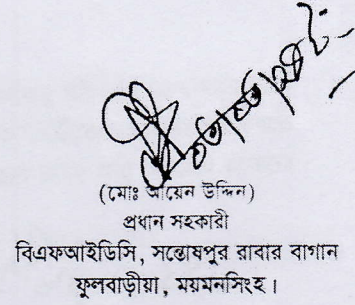 (মোঃ আয়েন উদ্দিন)
প্রধান সহকারী
বিএফআইডিসি, সন্তোষপুর রাবার বাগান
ফুলবাড়ীয়া, ময়মনসিংহ।